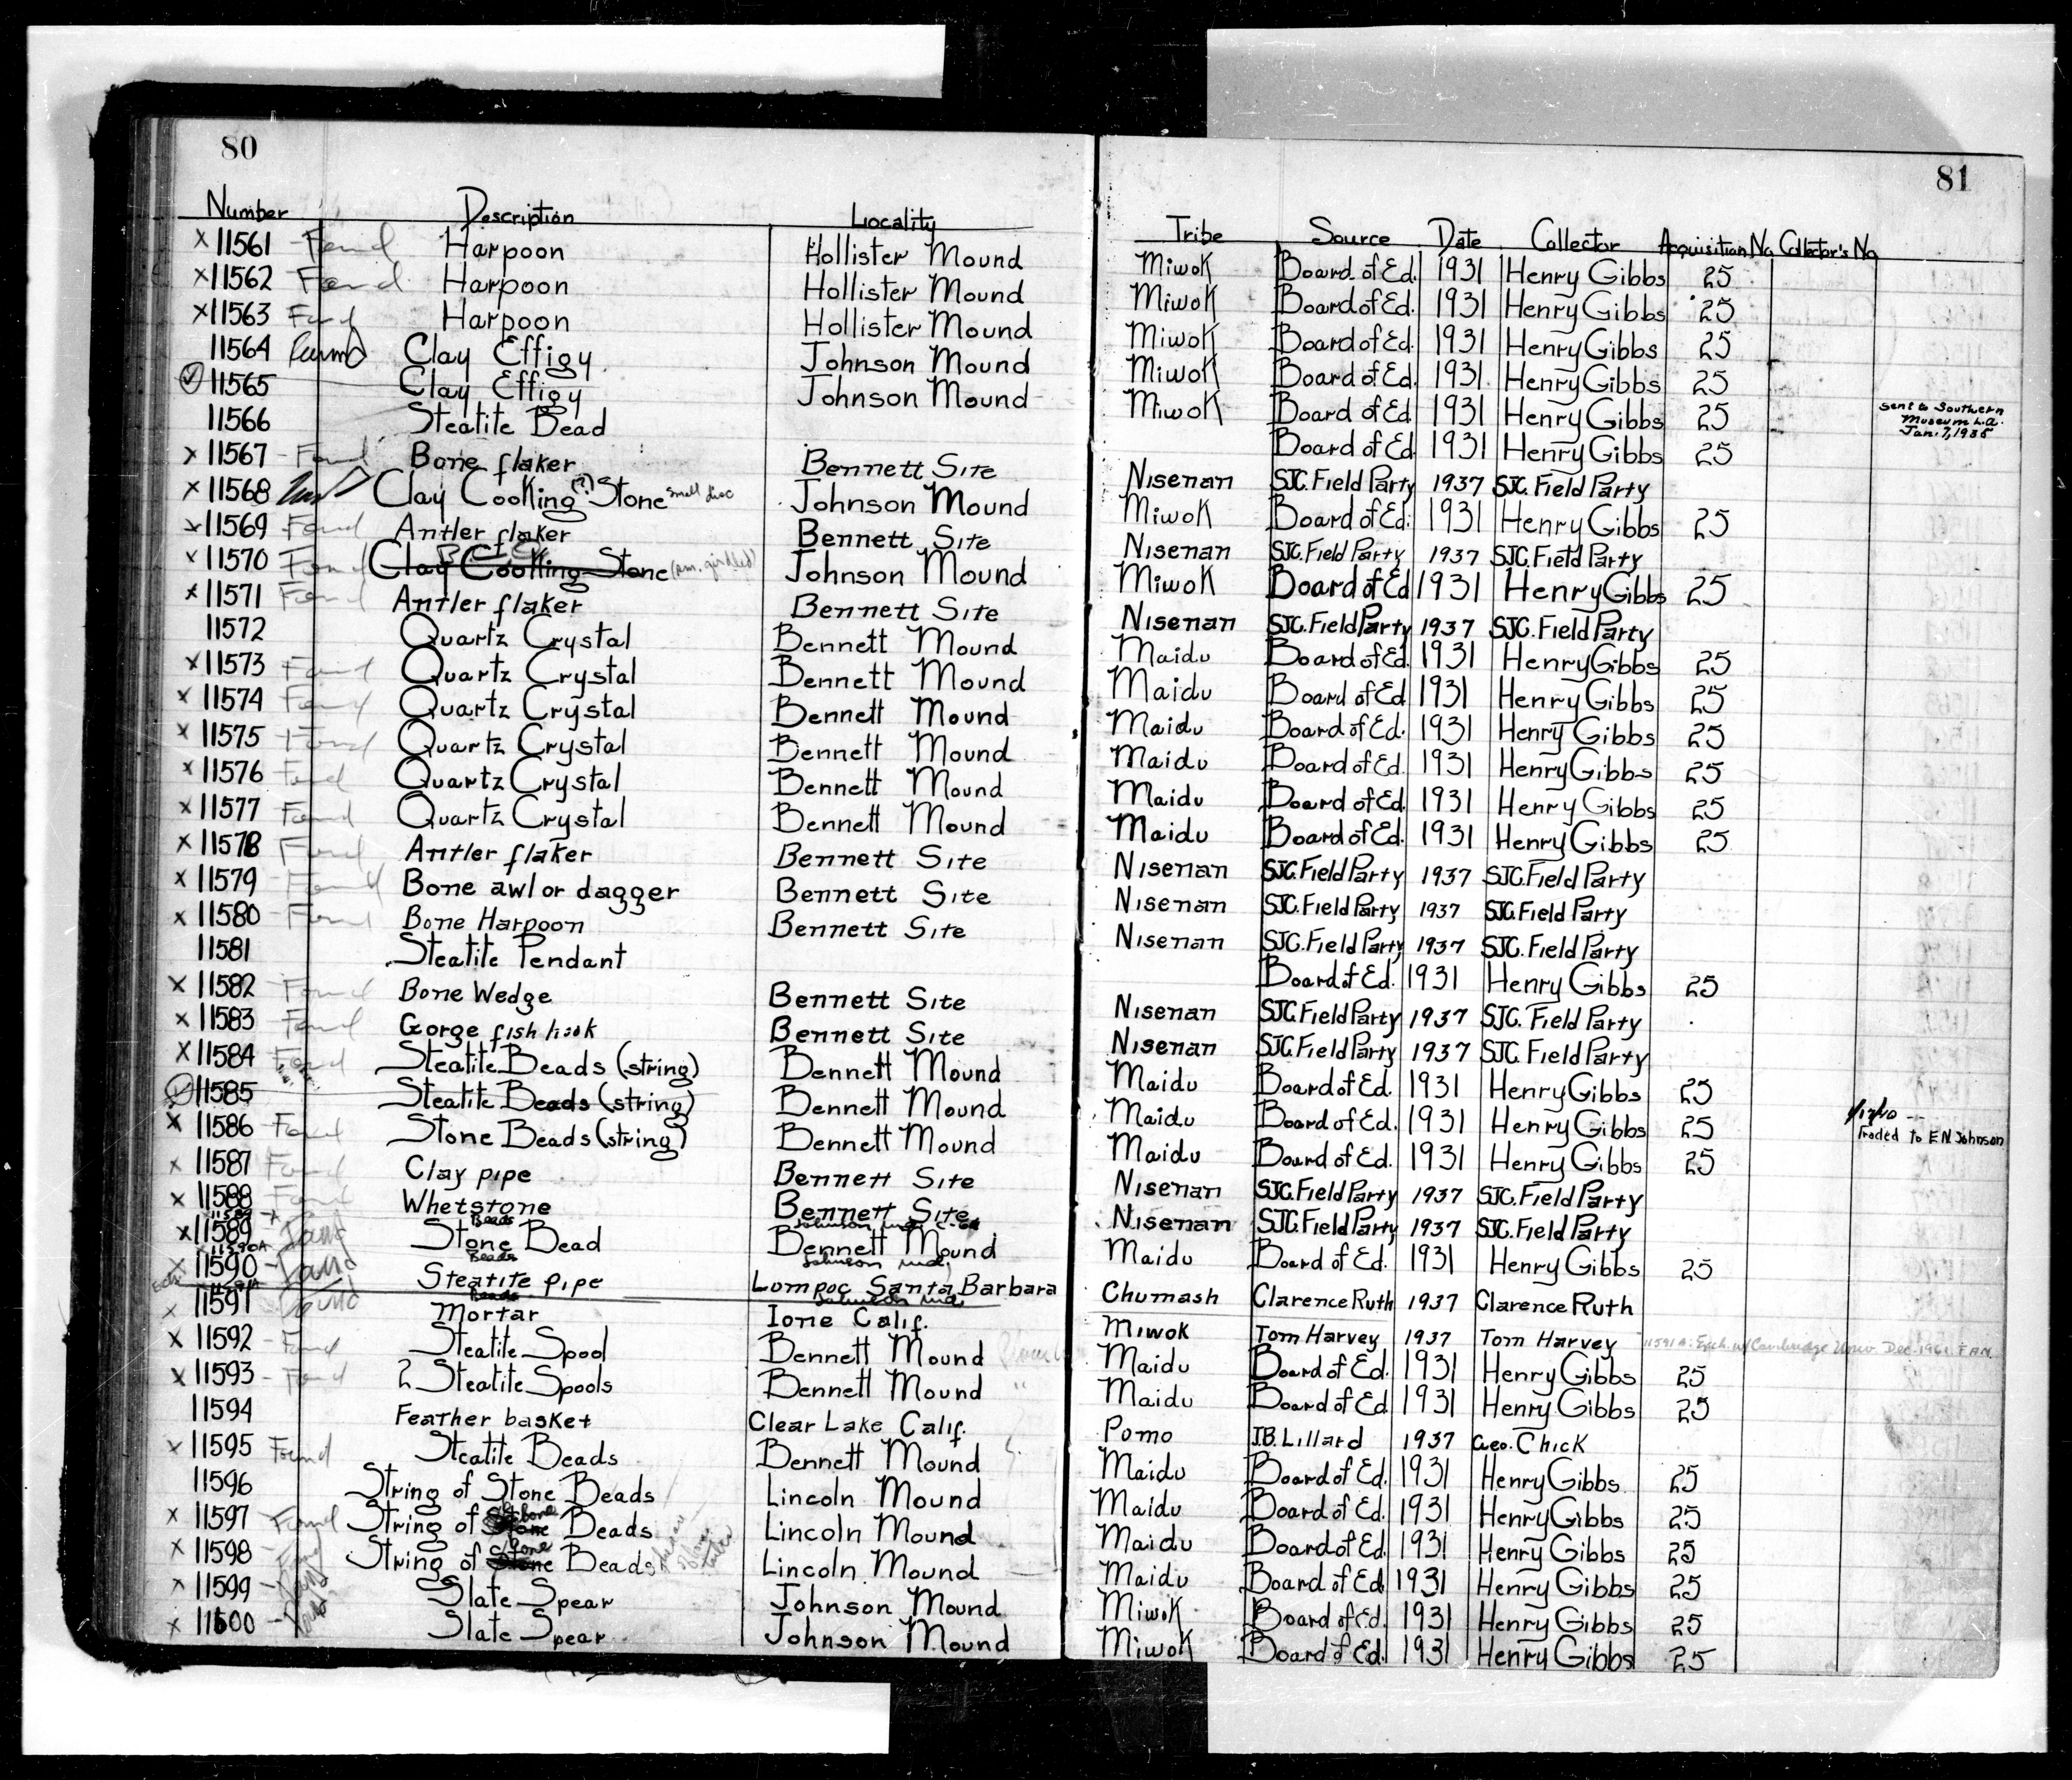 80
Number Description Locality
x 11561 - Found Harpoon Hollister Mound
x 11562 Found Harpoon Hollister Mound
x 11563 Found Harpoon Hollister Mound
11564 Found Clay Effigy Johnson Mound
✓ 11565 Clay Effigy Johnson Mound
11566 Steatite Bead
x 11567 - Found Bone flaker Bennett Site
x 11568 Clay Cooking (?) Stone small disc Johnson Mound
x 11569 Found Antler flaker Bennett Site
x 11570 Found Clay Cooking Stone Johnson Mound
x 11571 Found Antler flaker Bennett Site
11572 Quartz Crystal Bennett Mound
x 11573 Found Quartz Crystal Bennett Mound
x 11574 Found Quartz Crystal Bennett Mound
x 11575 Found Quartz Crystal Bennett Mound
x 11576 Found Quartz Crystal Bennett Mound
x 11577 Found Quartz Crystal Bennett Mound
x 11578 Found Antler flaker Bennett Site
x 11579 Found Bone awl or dagger Bennett Site
x 11580 - Found Bone Harpoon Bennett Site
11581 Steatite Pendant
x 11582 Found Bone Wedge Bennett Site
x 11583 Found Gorge fish hook Bennett Site
x 11584 Found Steatite Beads (string) Bennett Mound
✓ 11585 Steatite Beads (string) Bennett Mound
x 11586 Found Stone Beads (string) Bennett Mound
x 11587 Found Clay pipe Bennett Site
x 11588 Found Whetstone Bennett Site
Beads Johnson Md.
x 11589 - Found Stone Bead Bennett Mound
x 11590A Beads Johnson Md.
x 11590 - Found Steatite pipe Lompoc Santa Barbara
11591A Beads Johnson Md.
x 11591 Found Mortar Ione Calif.
x 11592 - Found Steatite Spool Bennett Mound
x 11593 - Found 2 Steatite Spools Bennett Mound "
11594 Feather basket Clear Lake Calif.
x 11595 Found Steatite Beads Bennett Mound
11596 String of Stone Beads Lincoln Mound
x 11597 Found String of Stone bone Beads Lincoln Mound
x 11598 - Found String of Stone bone Beads Lincoln Mound
x 11599 - Found Slate Spear Johnson Mound
x 11600 - Found Slate Spear Johnson Mound
81
Tribe Source Date Collector Acquisition No. Collector's No.
Miwok Board of Ed. 1931 Henry Gibbs 25
Miwok Board of Ed. 1931 Henry Gibbs 25
Miwok Board of Ed. 1931 Henry Gibbs 25
Miwok Board of Ed. 1931 Henry Gibbs 25
Miwok Board of Ed. 1931 Henry Gibbs 25 Sent to Southern
Museum L.A.
Jan. 7, 1938
Board of Ed. 1931 Henry Gibbs 25
Nisenan SJC. Field Party 1937 SJC. Field Party
Miwok Board of Ed. 1931 Henry Gibbs 25
Nisenan SJC. Field Party 1937 SJC. Field Party
Miwok Board of Ed 1931 Henry Gibbs 25
Nisenan SJC. Field Party 1937 SJC. Field Party
Maidu Board of Ed. 1931 Henry Gibbs 25
Maidu Board of Ed 1931 Henry Gibbs 25
Maidu Board of Ed. 1931 Henry Gibbs 25
Maidu Board of Ed. 1931 Henry Gibbs 25
Maidu Board of Ed. 1931 Henry Gibbs 25
Maidu Board of Ed. 1931 Henry Gibbs 25
Nisenan SJC. Field Party 1937 SJC. Field Party
Nisenan SJC. Field Party 1937 SJC. Field Party
Nisenan SJC. Field Party 1937 SJC. Field Party
Board of Ed. 1931 Henry Gibbs 25
Nisenan SJC. Field Party 1937 SJC. Field Party
Nisenan SJC. Field Party 1937 SJC. Field Party
Maidu Board of Ed. 1931 Henry Gibbs 25
Maidu Board of Ed. 1931 Henry Gibbs 25 Traded to E.N. Johnson
Maidu Board of Ed. 1931 Henry Gibbs 25
Nisenan SJC. Field Party 1937 SJC. Field Party
Nisenan SJC. Field Party 1937 SJC. Field Party
Maidu Board of Ed. 1931 Henry Gibbs 25
Chumash Clarence Ruth 1937 Clarence Ruth
Miwok Tom Harvey 1937 Tom Harvey 11591A: Exch. w/ Cambridge Univ. Dec. 1961. F.A.N.
Maidu Board of Ed. 1931 Henry Gibbs 25
Maidu Board of Ed 1931 Henry Gibbs 25
Pomo J.B. Lillard 1937 Geo. Chick
Maidu Board of Ed. 1931 Henry Gibbs 25
Maidu Board of Ed. 1931 Henry Gibbs 25
Maidu Board of Ed. 1931 Henry Gibbs 25
Maidu Board of Ed 1931 Henry Gibbs 25
Miwok Board of Ed. 1931 Henry Gibbs 25
Miwok Board of Ed. 1931 Henry Gibbs 25